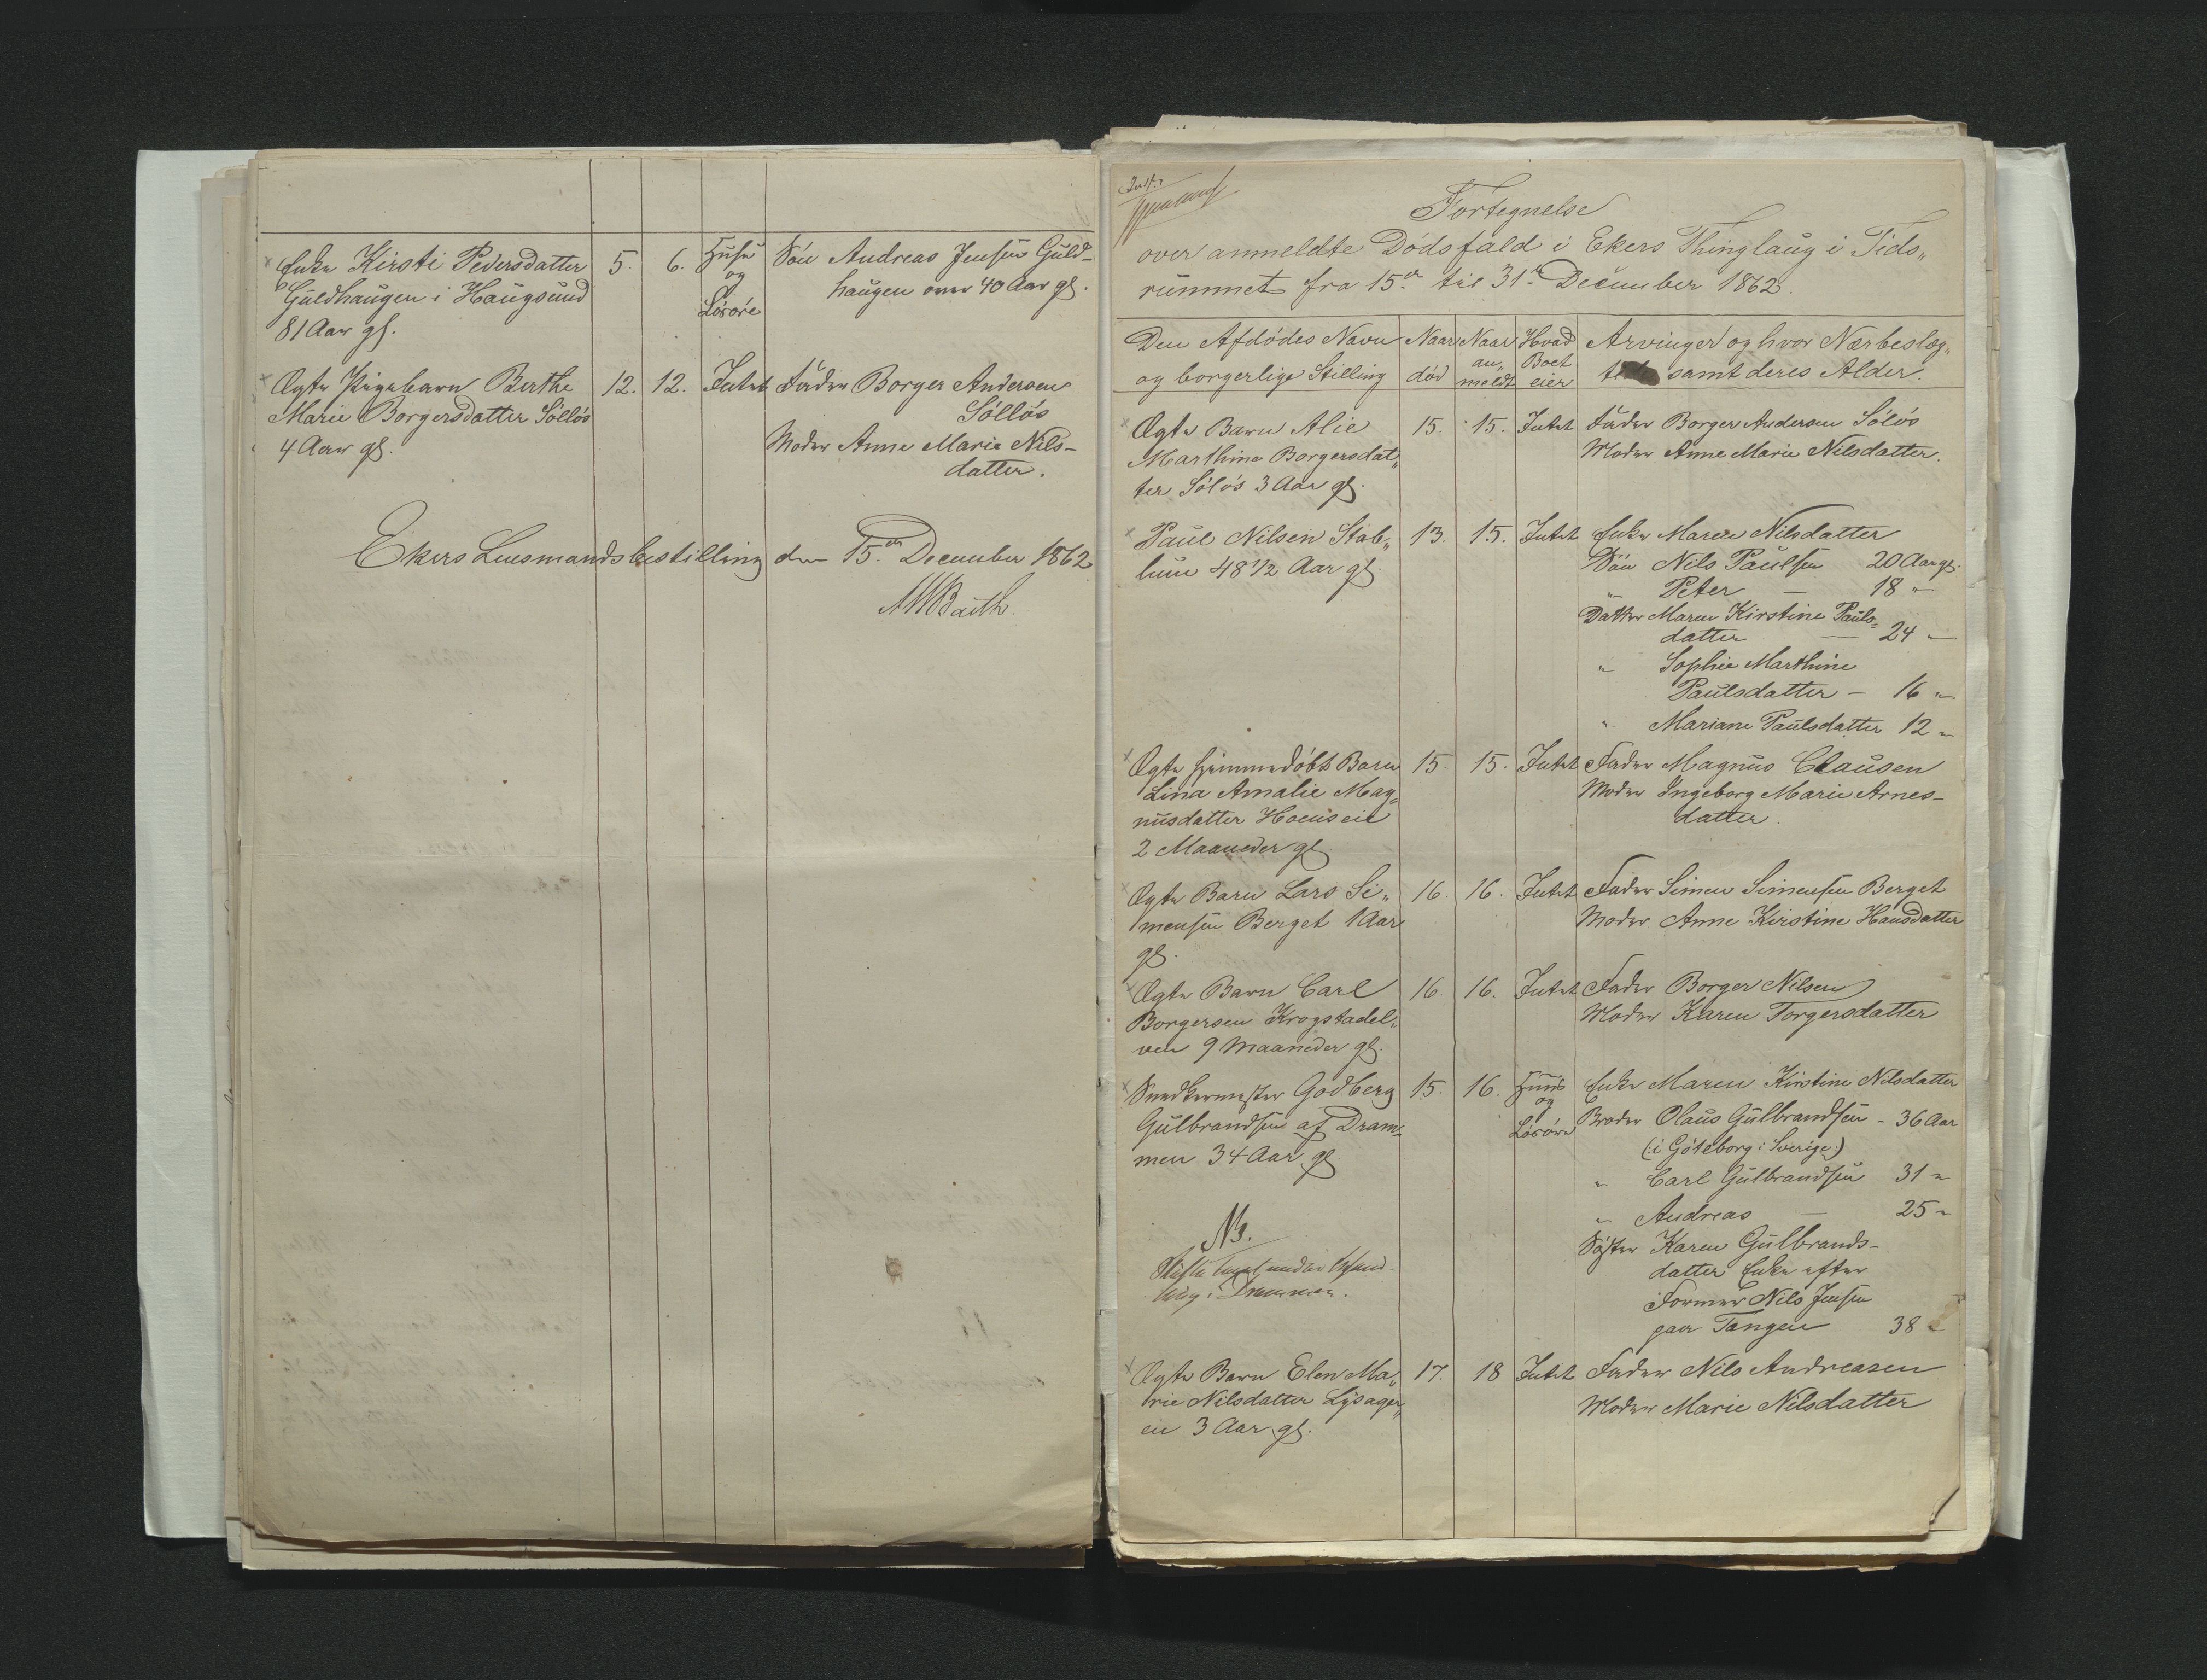 Enke Kirsti Pedersdatter 5. 6. Huse Søn Andreas Jensen Guld-
Guldhaugen i Haugsund og haugen over 40 Aar gl.
81 Aar gl. Løsøre
Ægte Pigebarn Berthe 12. 12. Intet Fader Borger Andersen
Marie Borgersdatter Solløs Solløs
4 Aar gl. Moder Anne Marie Nils-
datter.
Ekers Lensmandsbestilling den 15de December 1862
Fortegnelse
over anmeldte Dødsfald i Ekers Thinglaug i Tids„
rummet fra 15de til 31te December 1862.
Den Afdødes Navn Naar Naar Hvad Arvinger og hvor Nærbeslæg„
og borgerlige Stilling død an„ Boet samt deres Alder.
meldt eier
Ægte Barn Alie 15. 15. Intet Fader Borger Andersen Soløs
Marthine Borgersdat„ Moder Anne Marie Nilsdatter.
ter Soløs 3 Aar gl.
Paul Nilsen Stab„ 13. 15. Intet Enke Maren Nilsdatter
lum 48 1/2 Aar gl. Søn Nils Paulsen 20 Aar gl.
" Peter — 18 "
Datter Maren Kirstine Pauls=
datter — 24 "
" Sophie Marthine
Paulsdatter — 16 "
" Mariane Paulsdatter 12 "
Ægte hjemmedøbt Barn 15. 15. Intet Fader Magnus Clausen
Lina Amalie Mag= Moder Ingeborg Marie Arnes-
nusdatter Hoenseie datter.
2 Maaneder gl.
Ægte Barn Lars Si„ 16. 16. Intet Fader Simen Simensen Berget
mensen Berget 1 Aar Moder Anne Kirstine Hansdatter
gl.
Ægte Barn Carl 16. 16. Intet Fader Borger Nilsen
Borgersen Krogstadel„ Moder Karen Torgersdatter
ven 9 Maaneder gl.
Snedkermester Godberg 15. 16. Huus Enke Maren Kirstine Nilsdatter
Gulbrandsen af Dram= og Broder Olaus Gulbrandsen - 36 Aar
men 34 Aar gl. Løsøre (: i Göteborg i Sverige :)
" Carl Gulbrandsen 31 "
" Andreas — 25 "
NB. Søster Karen Gulbrands-
datter Enke efter
i Drammen. Former Nils Jensen
paa Tangen 38 "
Ægte Barn Elen Ma„ 17. 18 Intet Fader Nils Andreasen
rie Nilsdatter Lysager„ Moder Marie Nilsdatter
en 3 Aar gl.